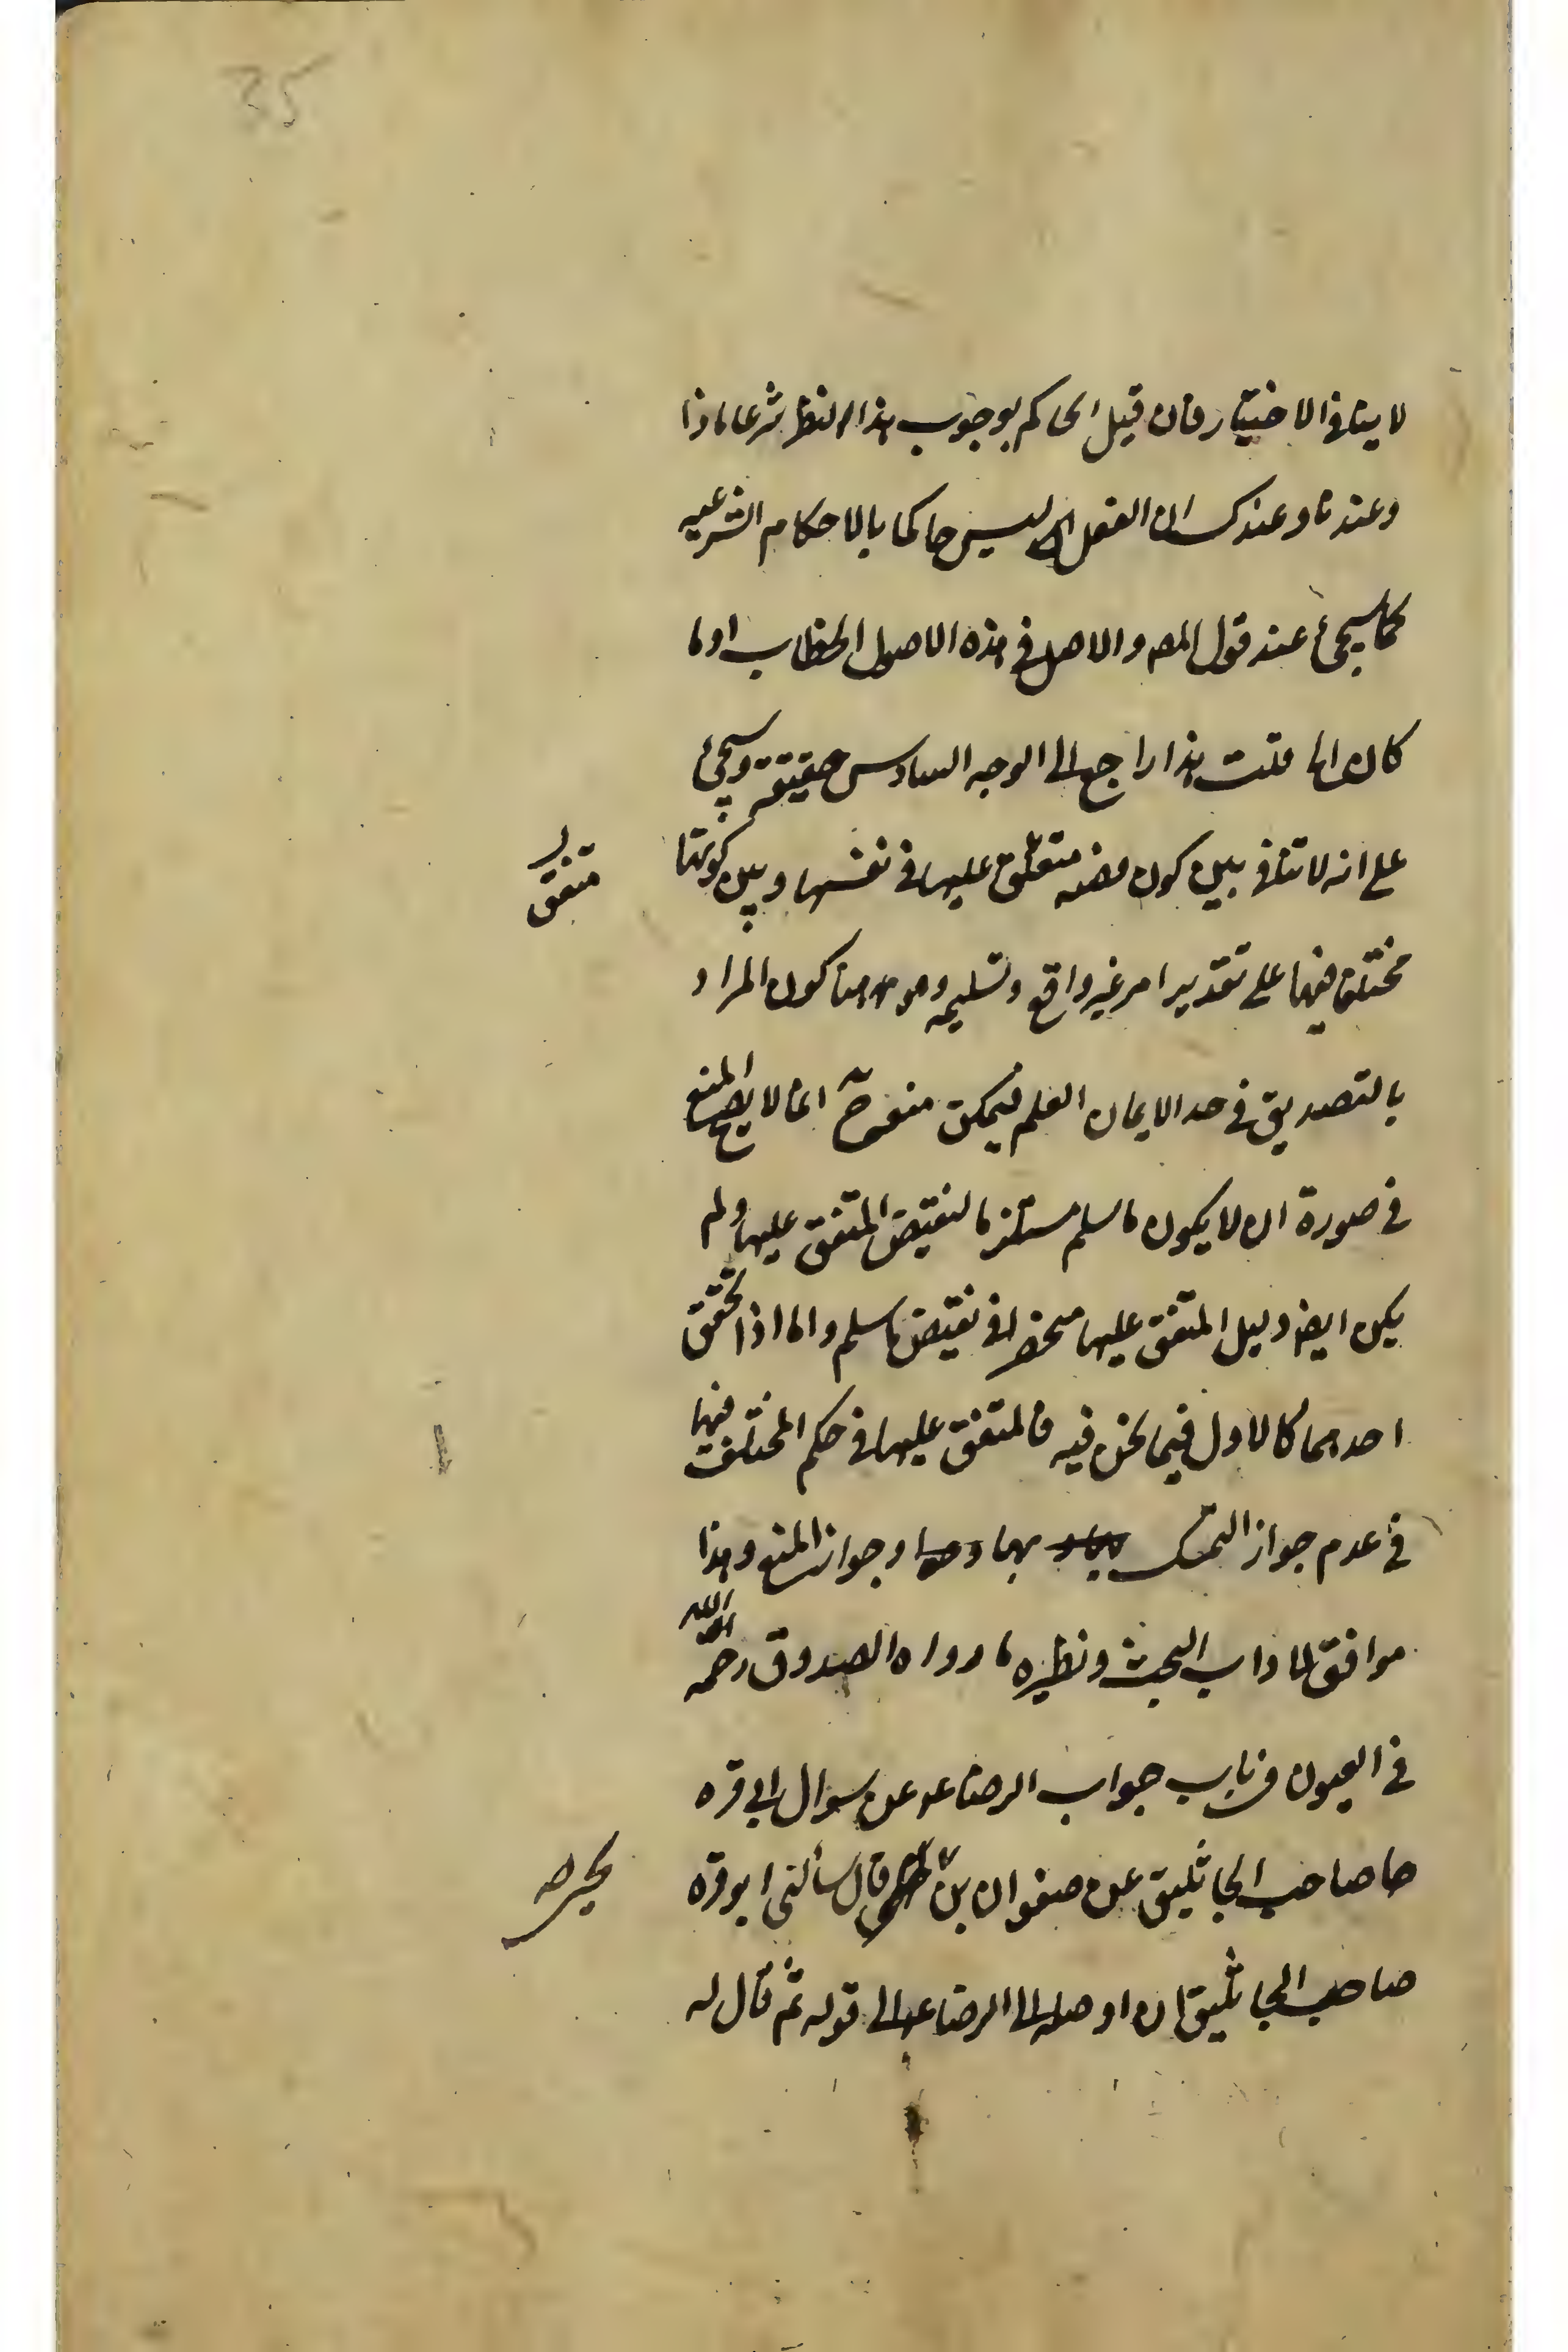 35
لا ينافى الاختيار فان قيل الحاكم بوجوب هذا النظر شرعا ماذا
وعندنا وعندك ان العقل ليس حاكما بالاحكام الشرعيه
كما سيجئ عند قول المص والاصل فى هذه الاصول الخطاب او ما
كان اما قلت هذا راجع الى الوجه السادس حقيقة وسيجئ
على انه لا تنافى بين كون متفق عليها فى نفسها وبين كونها
متفق
مختلف فيها على تقدير امر غير واقع وتسليمه وهو هنا كون المراد
بالتصديق فى حد الايمان العلم فيمكن منعه ح انما لا يصح المنع
فى صورة ان لا يكون ما سلم مستلزما لنقيض المتفق عليها ولم
يكن ايضا دليل المتفق عليها منحصرا فى نقيض ما سلم واما اذا تحقق
احدهما كالاول فيما نحن فيه فالمتفق عليها فى حكم المختلف فيها
فى عدم جواز التمسك بها وجواز المنع وهذا
موافق لاداب البحث ونظيره ما رواه الصدوق رحمه الله
فى العيون فى باب جواب الرضا ع عن سوال ابى قره
صاحب الجاثليق عن صفوان بن قال سألنى ابو قره
يحيى صه
صاحب الجاثليق ان اوصله الى الرضا ع الى قوله ثم قال له